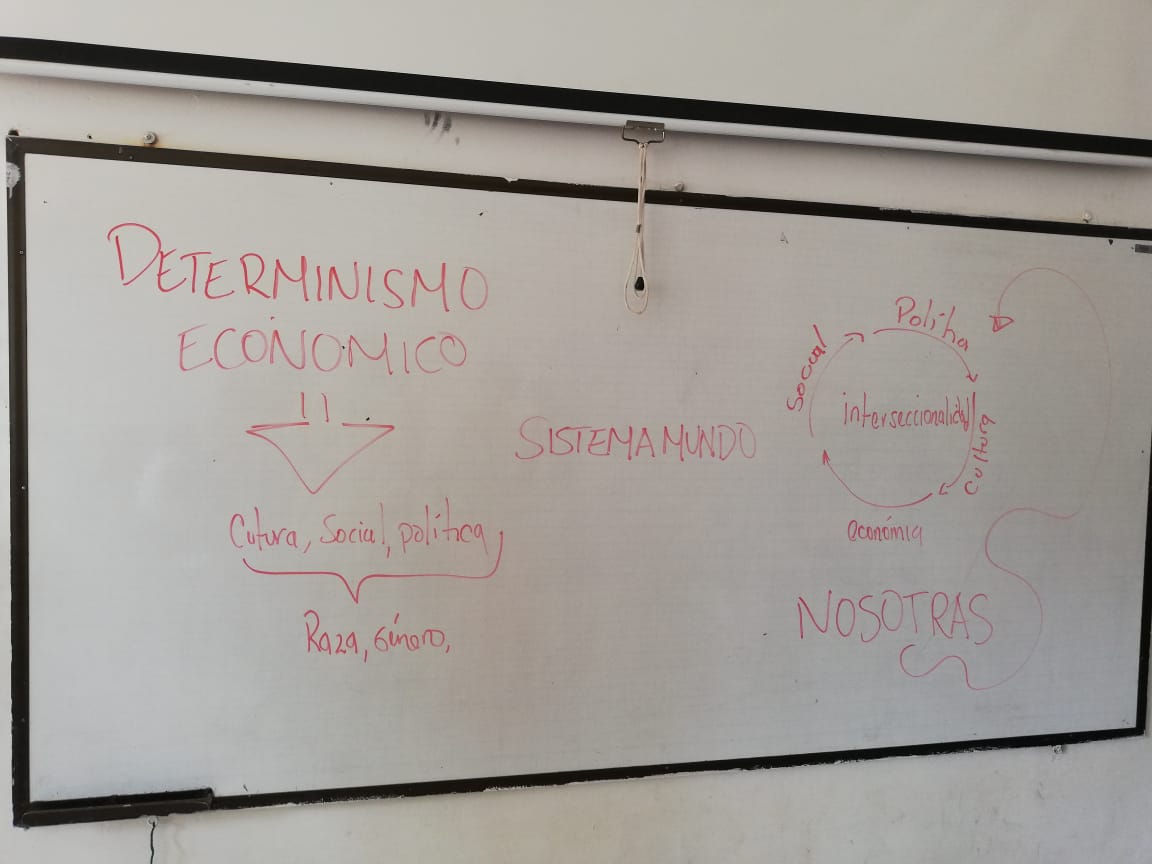 DETERMINISMO
ECONOMICO
Cutura, Social, política,
Raza, Género,
SISTEMA MUNDO
Política
Social
interseccionalidad
Cultura
económia
NOSOTRAS